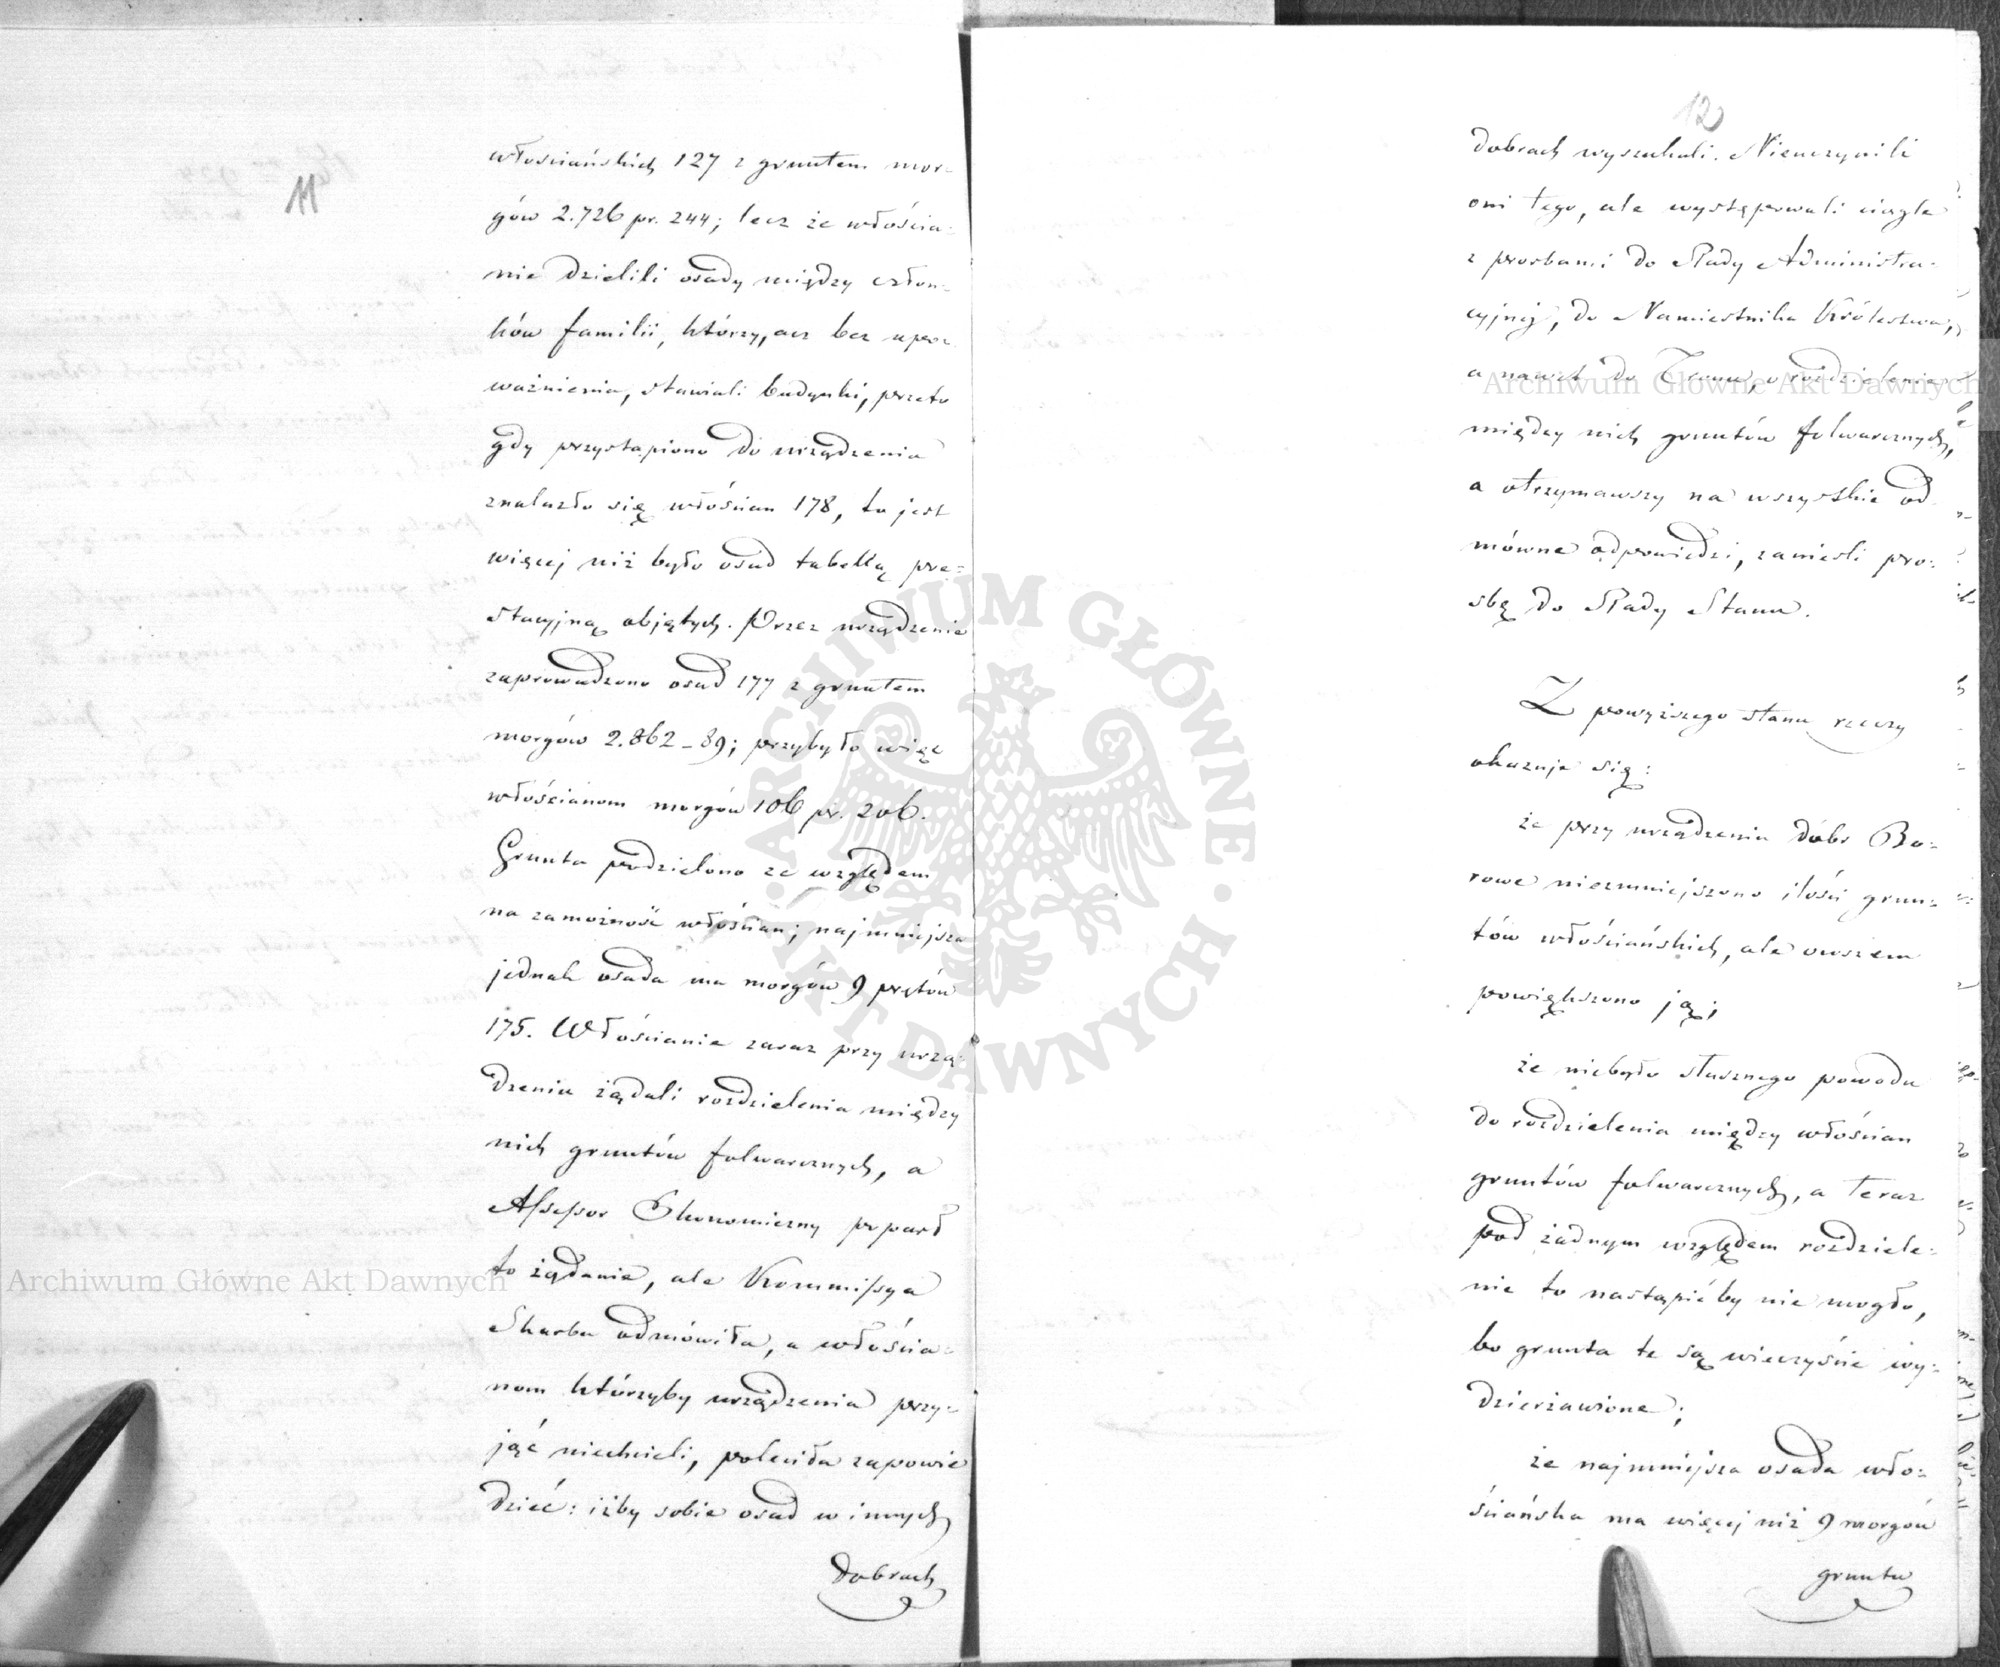 11
włościańskich 127 z gruntem mor-
gów 2.726 pr. 244; lecz że włościa-
nie dzielili osady między człon-
ków familii, którzy, acz bez upo-
ważnienia, stawiali budynki, przeto
gdy przystąpiono do urządzenia
znalazło się włościan 178, to jest
więcej niż było osad tabellą pre-
stacyjną objętych. Przez urządzenie
zaprowadzono osad 177 z gruntem
morgów 2.862 – 89; przybyło więc
włościanom morgów 106 pr. 206.
Grunta podzielono ze względem
na zamożność włościan; najmniejsza
jednak osada ma morgów 9 prętów
175. Włościanie zaraz przy urzą-
dzeniu żądali rozdzielenia między
nich gruntów folwarcznych, a
Assessor Ekonomiczny poparł
to żądanie, ale Kommissya
Skarbu odmówiła, a włościa-
nom którzyby urządzenia przy-
jąć niechcieli, poleciła zapowie
dzieć: iżby sobie osad w innych
dobrach
12
dobrach wyszukali. Nieuczynili
oni tego, ale występowali ciągle
z prośbami do Rady Administra-
cyjnej, do Namiestnika Królestwa,
a nawet do Tronu, o rozdzielenie
między nich gruntów folwarcznych,
a otrzymawszy na wszystkie od
mówne odpowiedzi, zanieśli pro-
śbę do Rady Stanu.
Z powyższego stanu rzeczy
okazuje się:
że przy urządzeniu dóbr Bo-
rowe niezmniejszono ilości grun-
tów włościańskich, ale owszem
powiększono ją;
że niebyło słusznego powodu
do rozdzielenia między włościan
gruntów folwarcznych, a teraz
pod żadnym względem rozdziele-
nie to nastąpić by nie mogło,
bo grunta te są wieczyście wy-
dzierżawione;
że najmniejsza osada wło-
ściańska ma więcej niż 9 morgów
gruntu
Archiwum Główne Akt Dawnych
Archiwum Główne Akt Dawnych
ARCHIWUM GŁÓWNE · AKT DAWNYCH ·